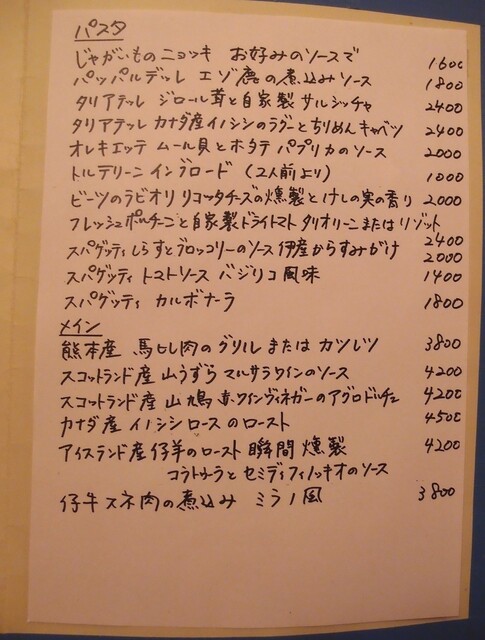 パスタ
じゃがいものニョッキ お好みのソースで 1600
パッパルデッレ エゾ鹿の煮込みソース 1800
タリアテッレ ジロール茸と自家製サルシッチャ 2400
タリアテッレ カナダ産イノシシのラグーとちりめんキャベツ 2400
オレキエッテ ムール貝とホタテ パプリカのソース 2000
トルテリーニ インブロード (2人前より) 1000
ビーツのラビオリ リコッタチーズの燻製とけしの実の香り 2000
フレッシュポルチーニと自家製ドライトマト タリオリーニまたはリゾット
2400
スパゲッティ しらすとブロッコリーのソース 伊産からすみがけ 2000
スパゲッティ トマトソース バジリコ風味 1400
スパゲッティ カルボナーラ 1800
メイン
熊本産 馬ヒレ肉のグリル または カツレツ 3800
スコットランド産 山うずら マルサラワインのソース 4200
スコットランド産 山鳩 赤ワインヴィネガーのアグロドルチェ 4200
カナダ産 イノシシロースのロースト 4500
アイスランド産 仔羊のロースト 瞬間燻製 4200
コラトゥーラと セミディフィノッキオのソース
仔牛スネ肉の煮込み ミラノ風 3800